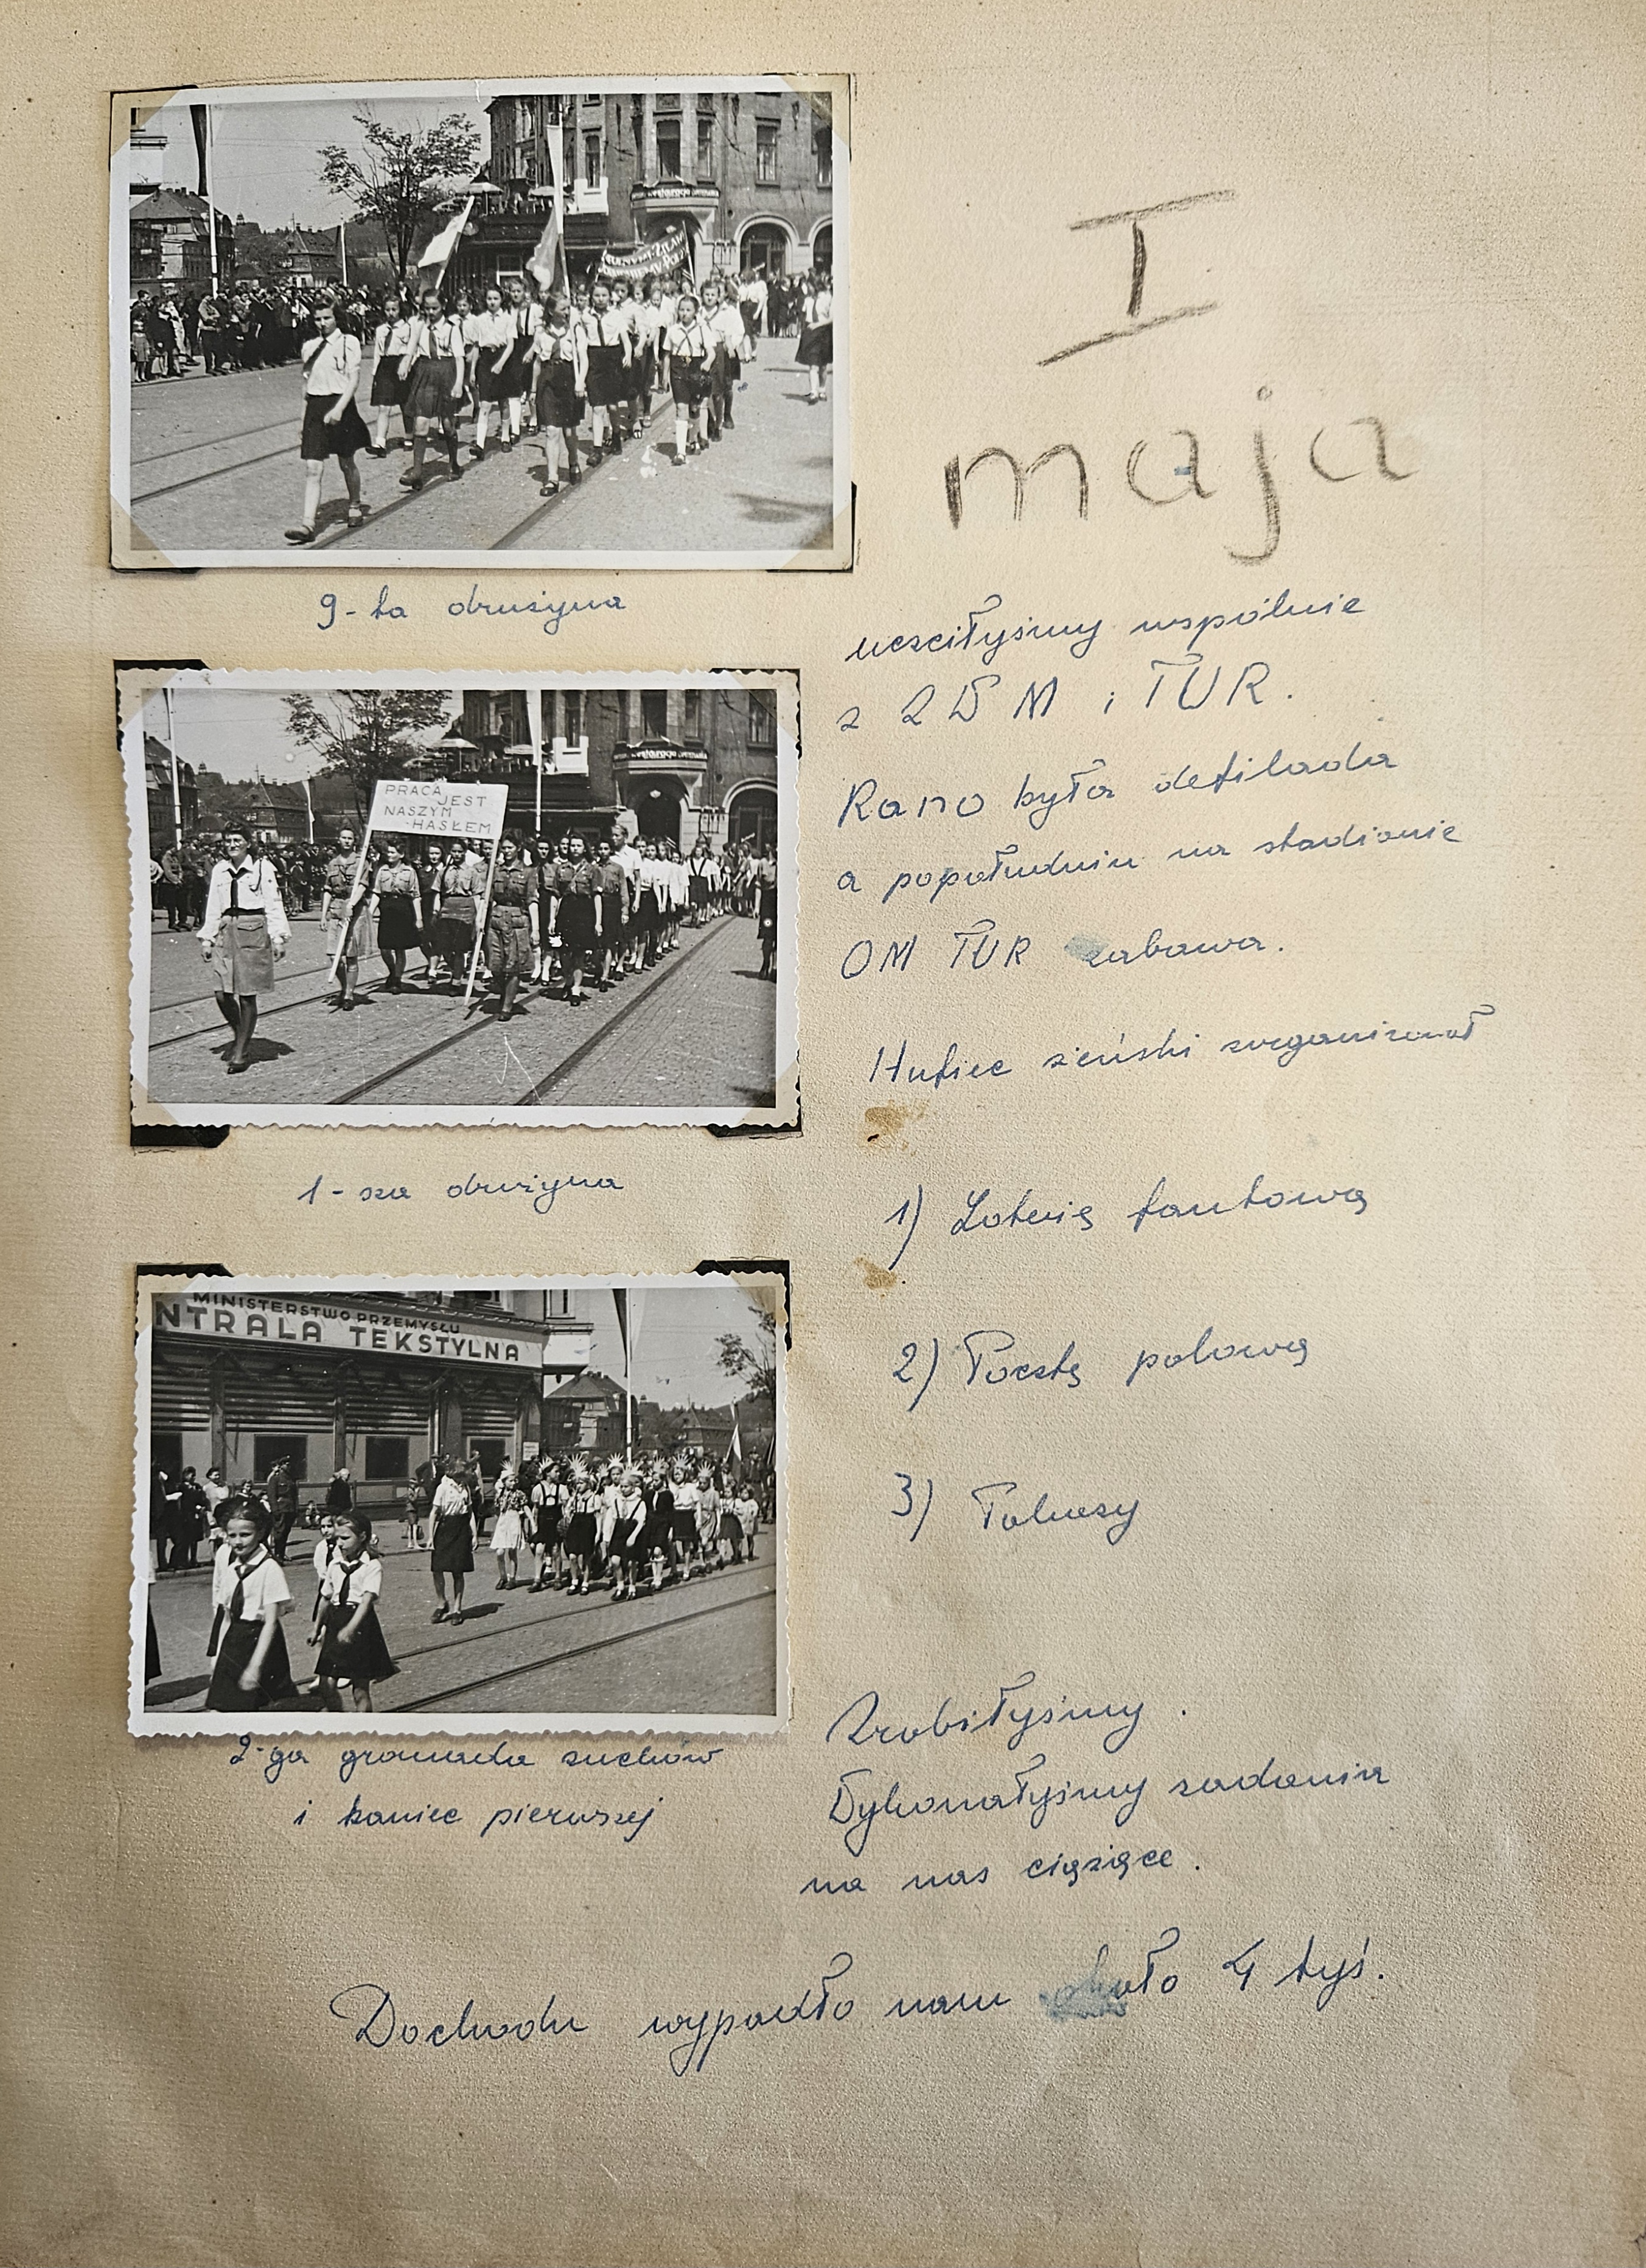 I
maja
9-ta drużyna
uczciłyśmy wspólnie
z ZWM i TUR.
Rano była defilada
a popołudniu na stadionie
OM TUR zabawa.
Hufiec żeński zorganizował
PRACA
JEST
NASZYM
HASŁEM
1-sza drużyna
1) Loterię fantową
2) Pocztę polową
3)
MINISTERSTWO PRZEMYSŁU
NTRALA TEKSTYLNA
2-ga gromada zuchów
i koniec pierwszej
Zrobiłyśmy.
Wykonałyśmy zadania
na nas ciążące.
Dochodu wypadło nam około 4 tyś.